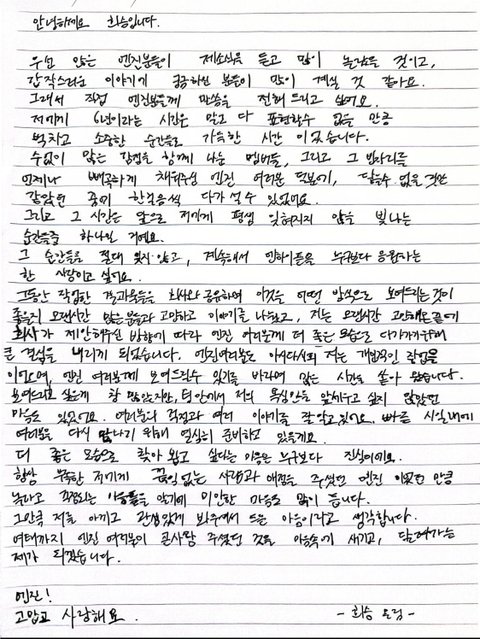 안녕하세요 희승입니다.
우선 많은 엔진분들이 제소식을 듣고 많이 놀랐을 것이고,
갑작스러운 이야기에 궁금하신 분들이 많이 계실 것 같아요.
그래서 직접 엔진분들께 말씀을 전해 드리고 싶어요.
저에게 6년이라는 시간은 말로 다 표현할수 없을 만큼
벅차고 소중한 순간들로 가득한 시간 이었습니다.
수없이 많은 감정을 함께 나눈 멤버들, 그리고 그 빈자리를
언제나 빼곡하게 채워주신 엔진 여러분 덕분에, 닿을수 없을 것만
같았던 꿈에 한걸음씩 다가갈 수 있었어요.
그리고 그 시간은 앞으로 저에게 평생 잊혀지지 않을 빛나는
순간들중 하나일 거예요.
그 순간들을 절대 잊지 않고, 계속해서 엔하이픈을 누구보다 응원하는
한 사람이고 싶어요.
그동안 작업한 결과물들을 회사와 공유하며 이것을 어떤 방식으로 보여드리는것이
좋을지 오랜시간 많은분들과 고민하고 이야기를 나눴고, 저는 오랜시간 고민해본끝에
회사가 제안해주신 방향에 따라 엔진 여러분께 더 좋은 모습으로 다가가기위해
큰 결심을 내리게 되었습니다. 엔진여러분도 아시다시피 저는 개인적인 작업물
이어오며, 엔진 여러분께 보여드릴수 있기를 바라며 많은 시간을 쏟아 왔습니다.
보여드리고 싶은게 참 많았지만, 팀 안에서 저의 욕심만을 앞세우고 싶지 않았던
마음도 있었어요. 여러분의 걱정과 여러 이야기를 잘 알고있어요. 빠른 시일내에
여러분을 다시 만나기 위해 열심히 준비하고 있을게요.
더 좋은 모습으로 찾아 뵙고 싶다는 마음은 누구보다 진심이에요.
항상 부족한 저에게 끝없는 사랑과 애정을 주셨던 엔진 이였던 만큼
놀라고 걱정되는 마음들을 알기에 미안한 마음도 많이 듭니다.
그만큼 저를 아끼고 관심있게 봐주셔서 드는 마음이라고 생각합니다.
여태까지 엔진 여러분이 큰사랑 주셨던 것을 마음속에 새기고, 달려가는
제가 되겠습니다.
엔진!
고맙고 사랑해요.
- 희승 올림 -